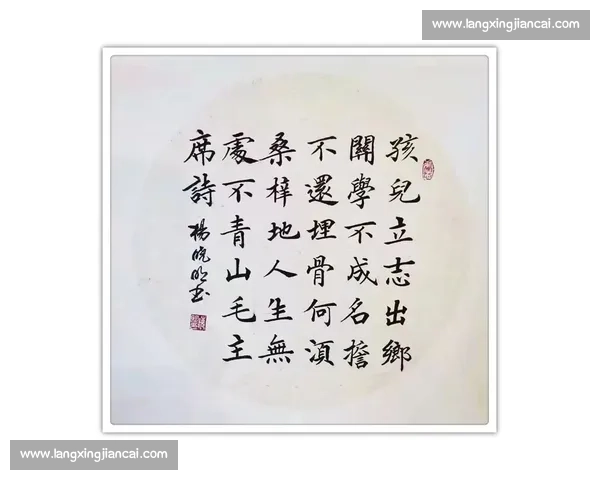 www.langxingjiancai.com
孩兒立志出鄉
關學不成名誓
不還埋骨何湏
桑梓地人生無
處不青山毛主
席詩
楊晓明书
www.langxingjiancai.com